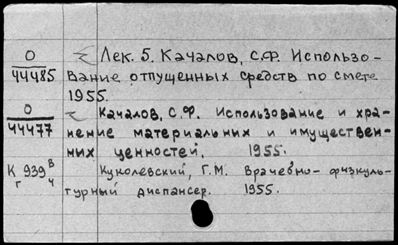 О
44485
Лек. 5. Качалов, С.Ф. Использо-
вание отпущенных средств по смете.
1955.
О
44477
Качалов, С.Ф. Использование и хра-
нение материальных и имуществен-
ных ценностей. 1955.
К 939 В
г ч
Куколевский, Г.М. Врачебно-физкуль-
турный диспансер. 1955.